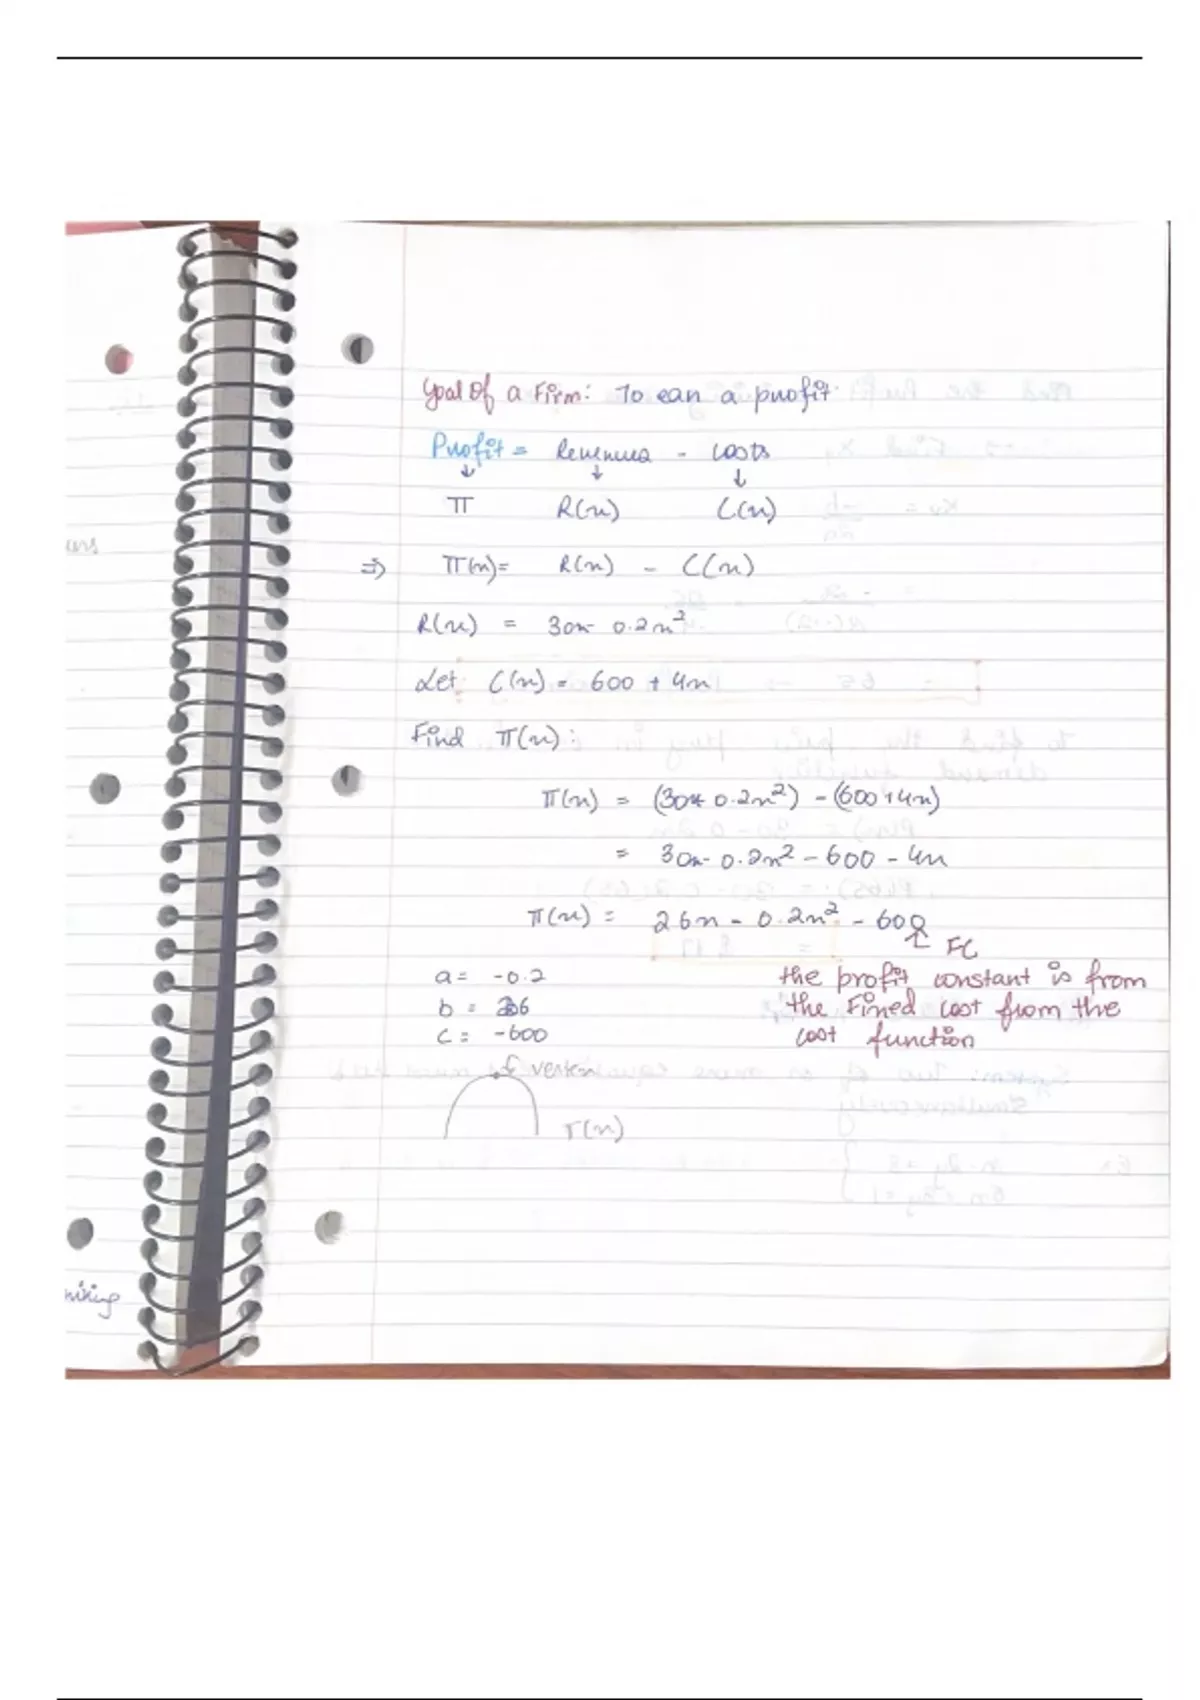 Goal of a Firm: To ean a profit.
Profit = Revenues - Costs
↓ ↓ ↓
π R(x) C(x)
⇒ π(x) = R(x) - C(x)
R(x) = 30x - 0.2x²
Let C(x) = 600 + 4x
Find π(x):
π(x) = (30x - 0.2x²) - (600 + 4x)
= 30x - 0.2x² - 600 - 4x
π(x) = 26x - 0.2x² - 600
↑ FC
a = -0.2
b = 26
c = -600
the profit constant is from
the Fixed cost from the
cost function
vertex
π(x)